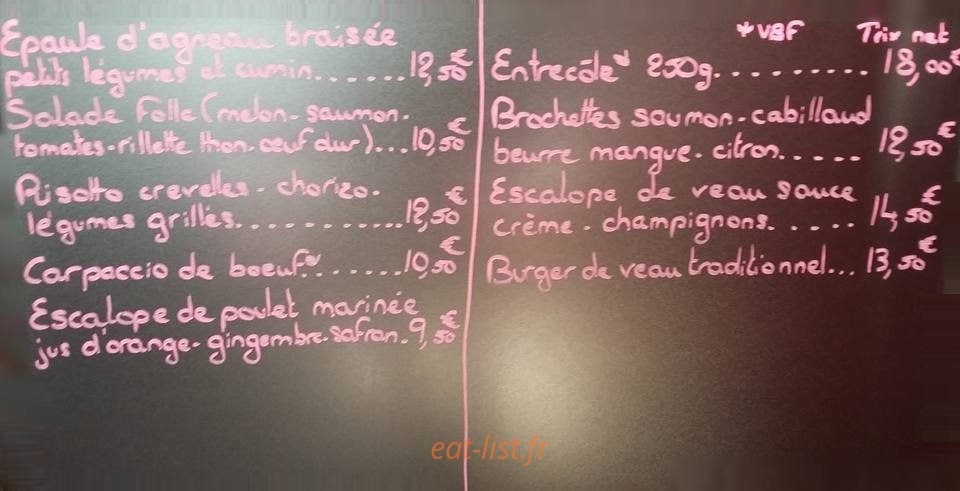 Epaule d'agneau braisée
petits légumes et cumin......12,50€
Salade Folle (melon-saumon.
tomates-rillette thon-œuf dur)...10,50€
Risotto crevettes-chorizo.
légumes grillés............12,50€
Carpaccio de boeuf*......10,50€
Escalope de poulet marinée
jus d'orange-gingembre-safran.9,50€
*VBF Prix net
Entrecôte* 250g.......... 18,00€
Brochettes saumon-cabillaud
beurre mangue-citron..... 12,50€
Escalope de veau sauce
crème-champignons...... 14,50€
Burger de veau traditionnel... 13,50€
eat-list.fr